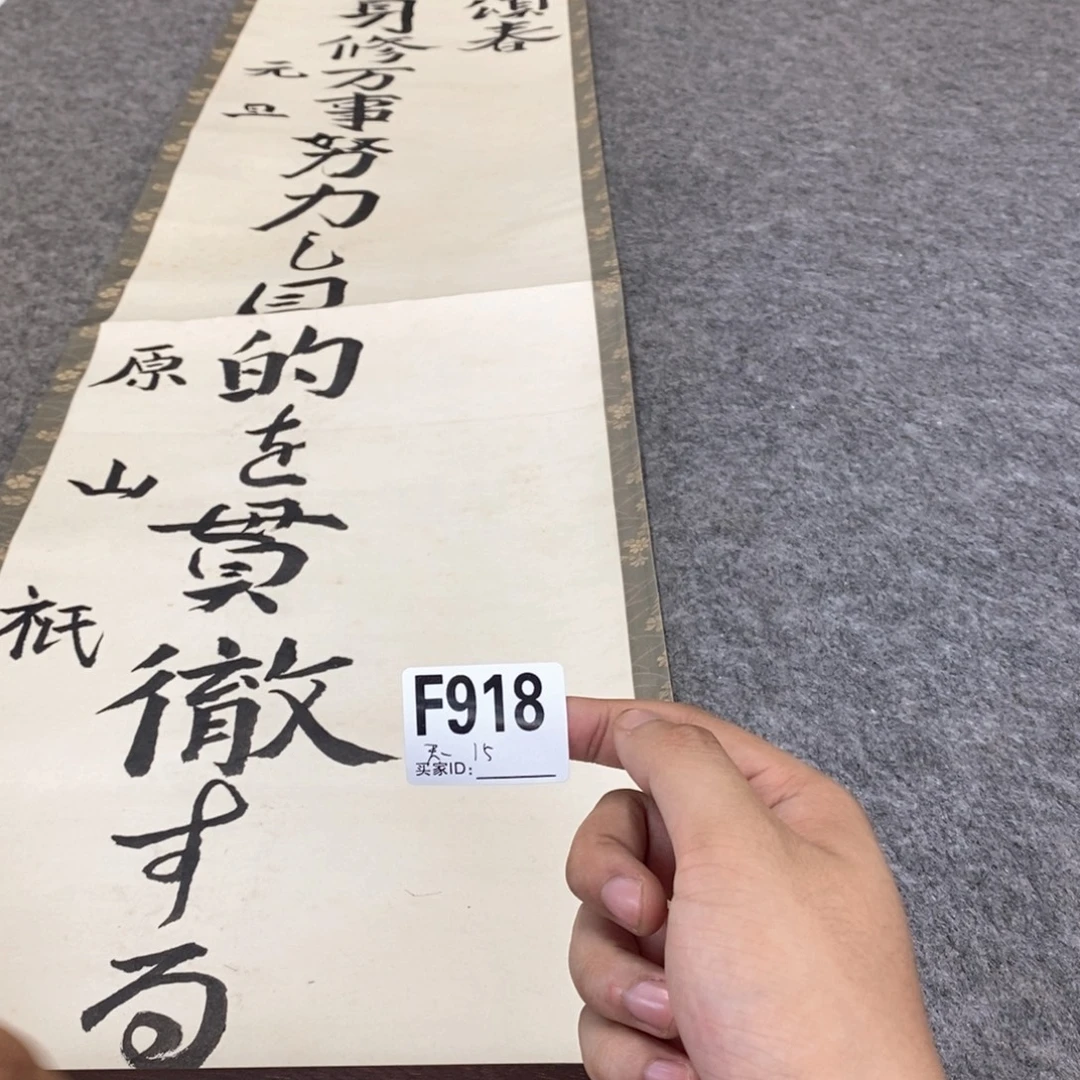 頌春
身修万事努力し目的を貫徹する
元旦
原山祇
F918
天 15
买家ID: